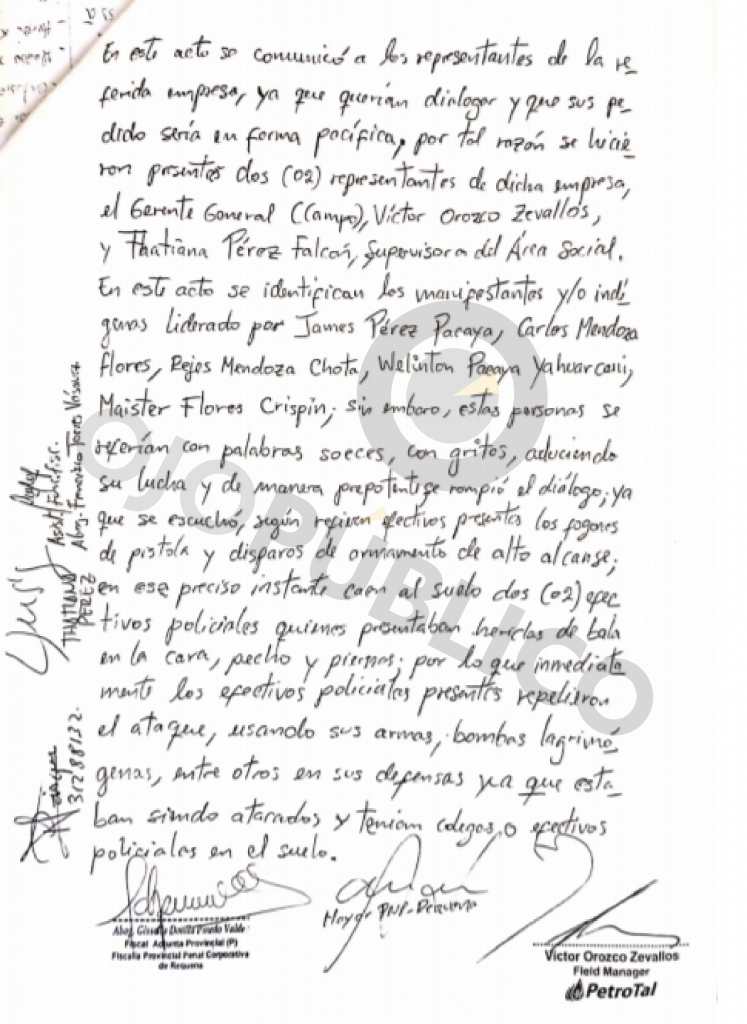 En este acto se comunicó a los representantes de la re
ferida empresa, ya que querían dialogar y que sus pe
dido sería en forma pacífica, por tal razón se hicie
ron presentes dos (02) representantes de dicha empresa,
el Gerente General (Campo), Víctor Orozco Zevallos,
y Thatiana Pérez Falcón, Supervisora del Área Social.
En este acto se identifican los manifestantes y/o indí
genas liderado por James Pérez Pacaya, Carlos Mendoza
Flores, Rejos Mendoza Chota, Welinton Pacaya Yahuarcani,
Maister Flores Crispin; sin embaro, estas personas se
referían con palabras soeces, con gritos, aduciendo
su lucha y de manera prepotente se rompió el diálogo; ya
que se escuchó, según refieren efectivos presentes los fogones
de pistola y disparos de armamento de alto alcanse;
en ese preciso instante caen al suelo dos (02) efec
tivos policiales quienes presentaban heridas de bala
en la cara, pecho y piernas; por lo que inmediata
mente los efectivos policiales presentes repelieron
el ataque, usando sus armas, bombas lagrimó,
genas, entre otros en sus defensas ya que esta-
ban siendo atacados y tenian colegas o efectivos
policiales en el suelo.
Asist. F
Abog. Francisco Torres Vásquez
THATIANA
PEREZ
31288132.
Fiscal Adjunta Provincial (P)
Fiscalía Provincial Penal Corporativa
de Requena
Mayor PNP-Requena
Víctor Orozco Zevallos
Field Manager
PetroTal
OJOPÚBLICO